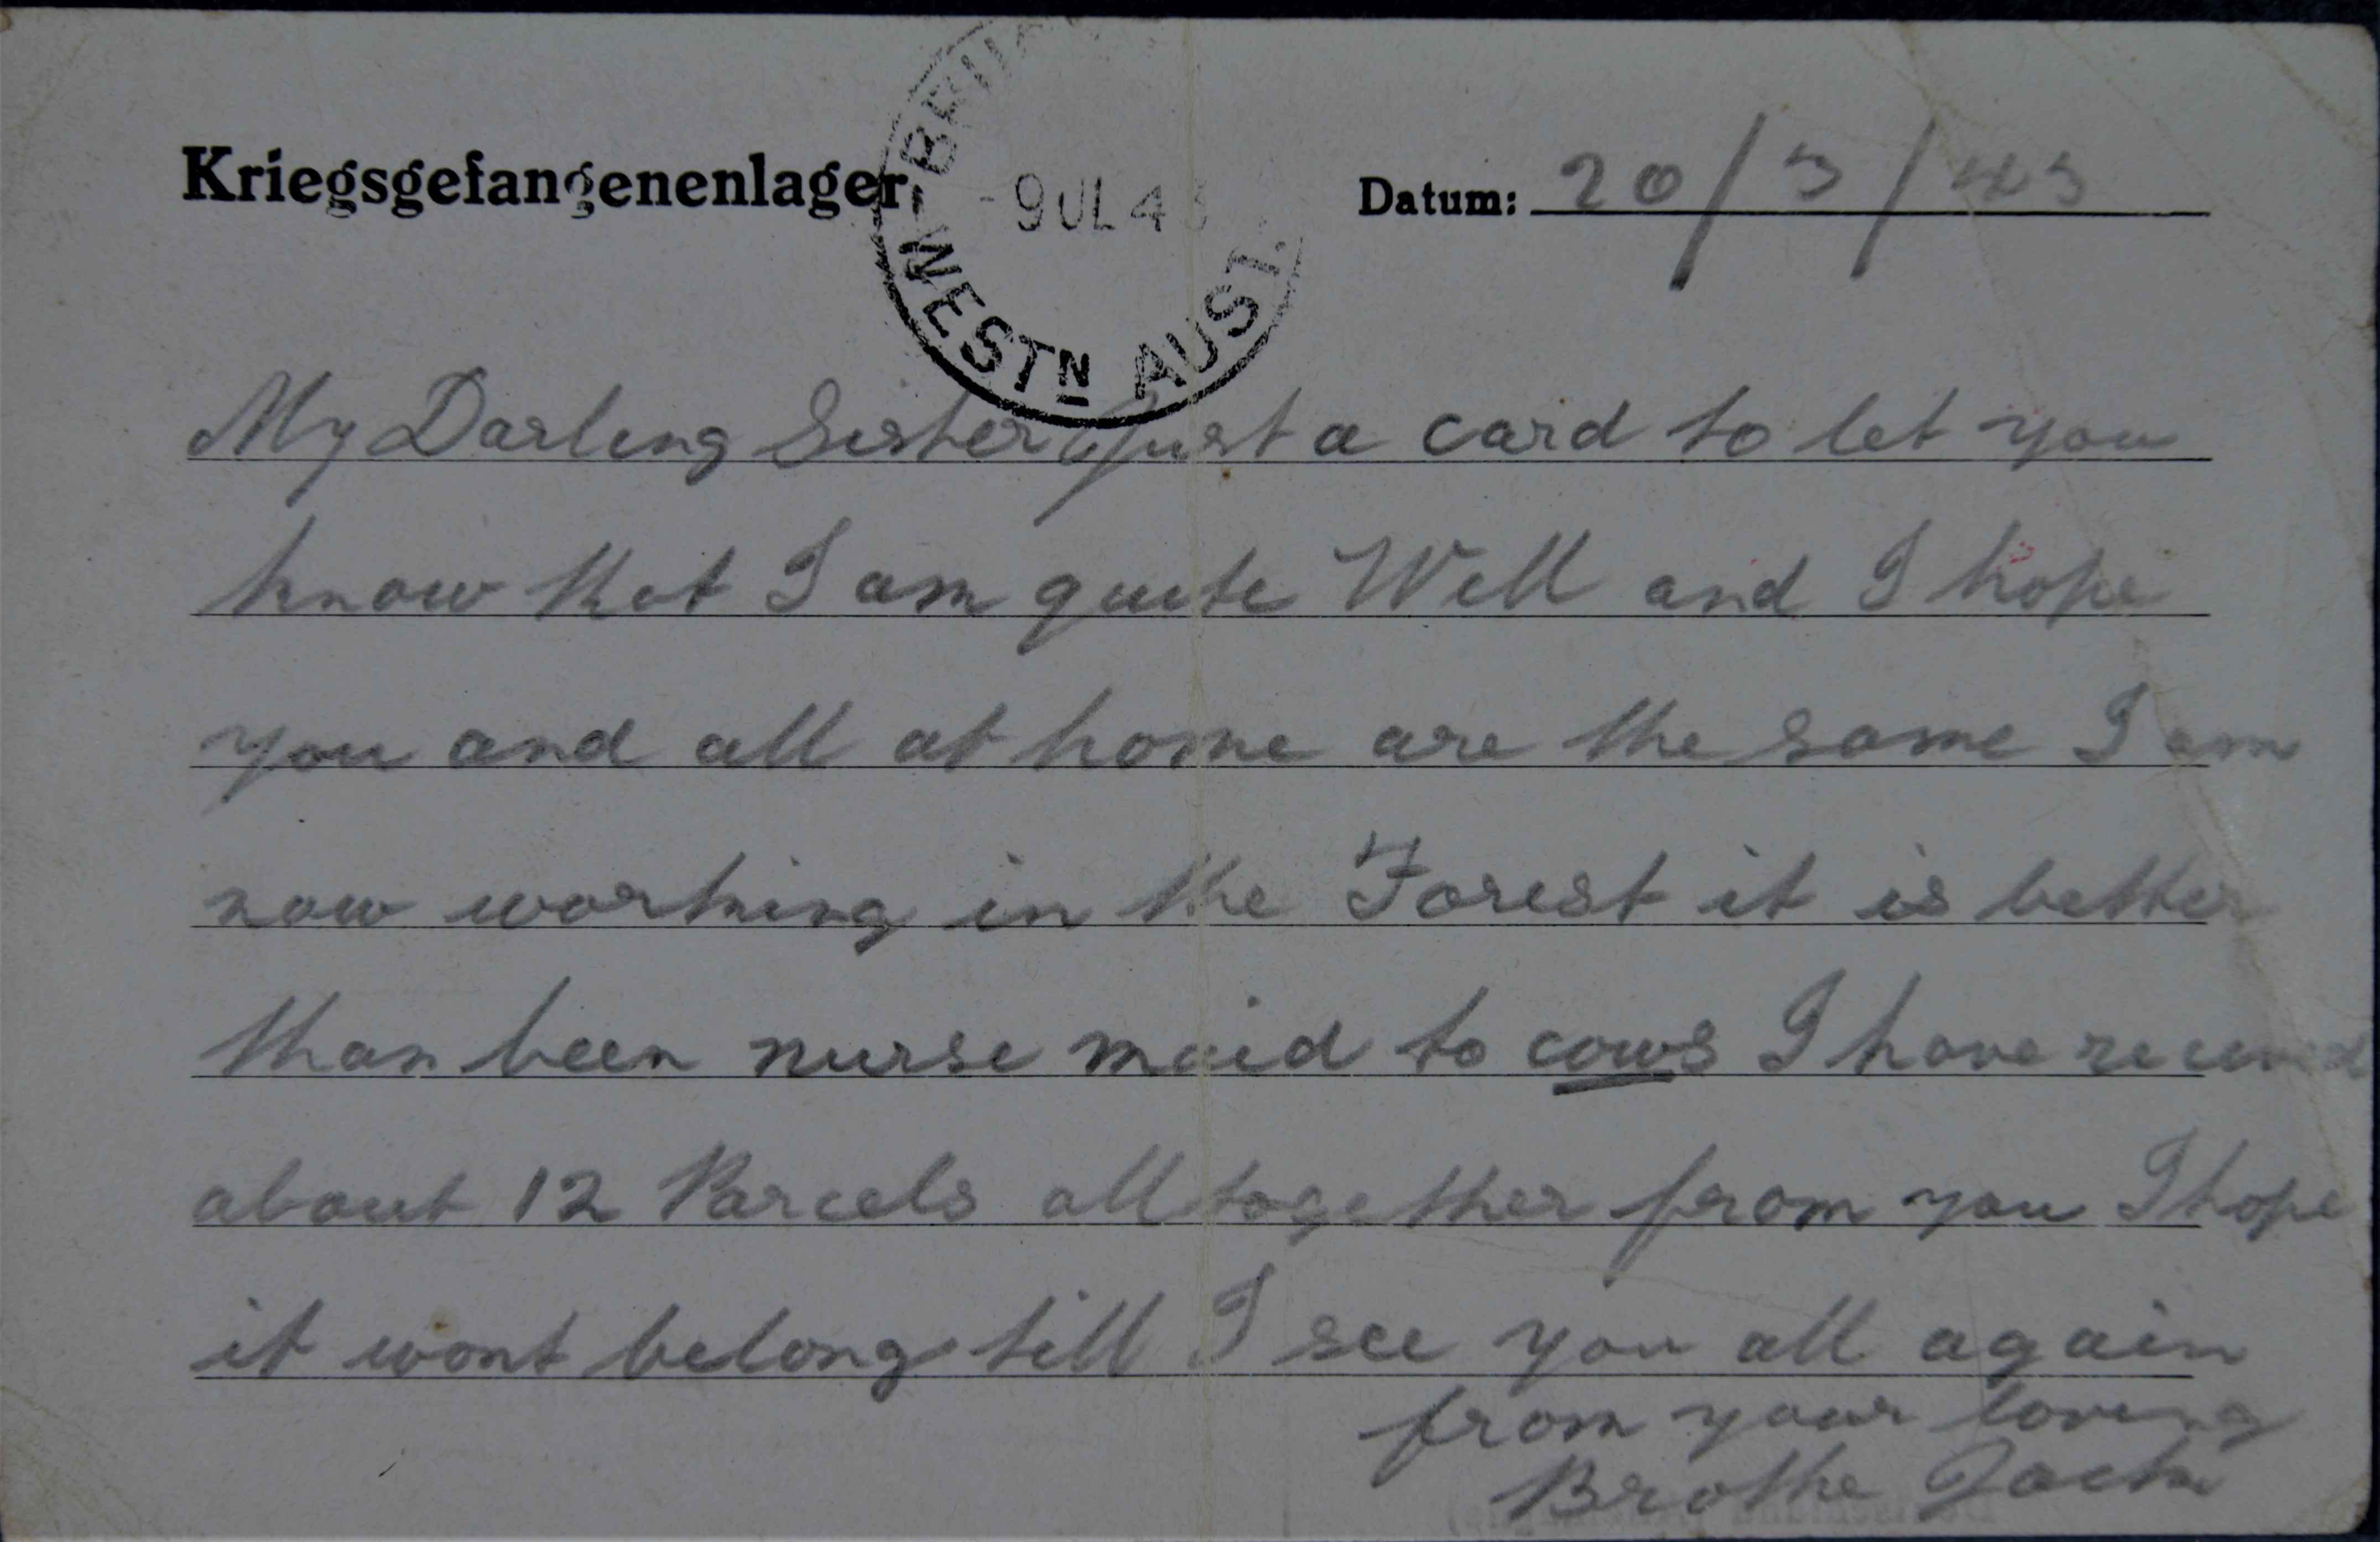 Kriegsgefangenenlager
Datum: 20/3/43
9 JL 43
WESTN AUST.
My Darling Sister Just a card to let you
know that I am quite Well and I hope
you and all at home are the same I am
now working in the Forest it is better
than been nurse maid to cows I have received
about 12 Parcels all together from you I hope
it wont belong till I see you all again
from your loving
Brothe Jack